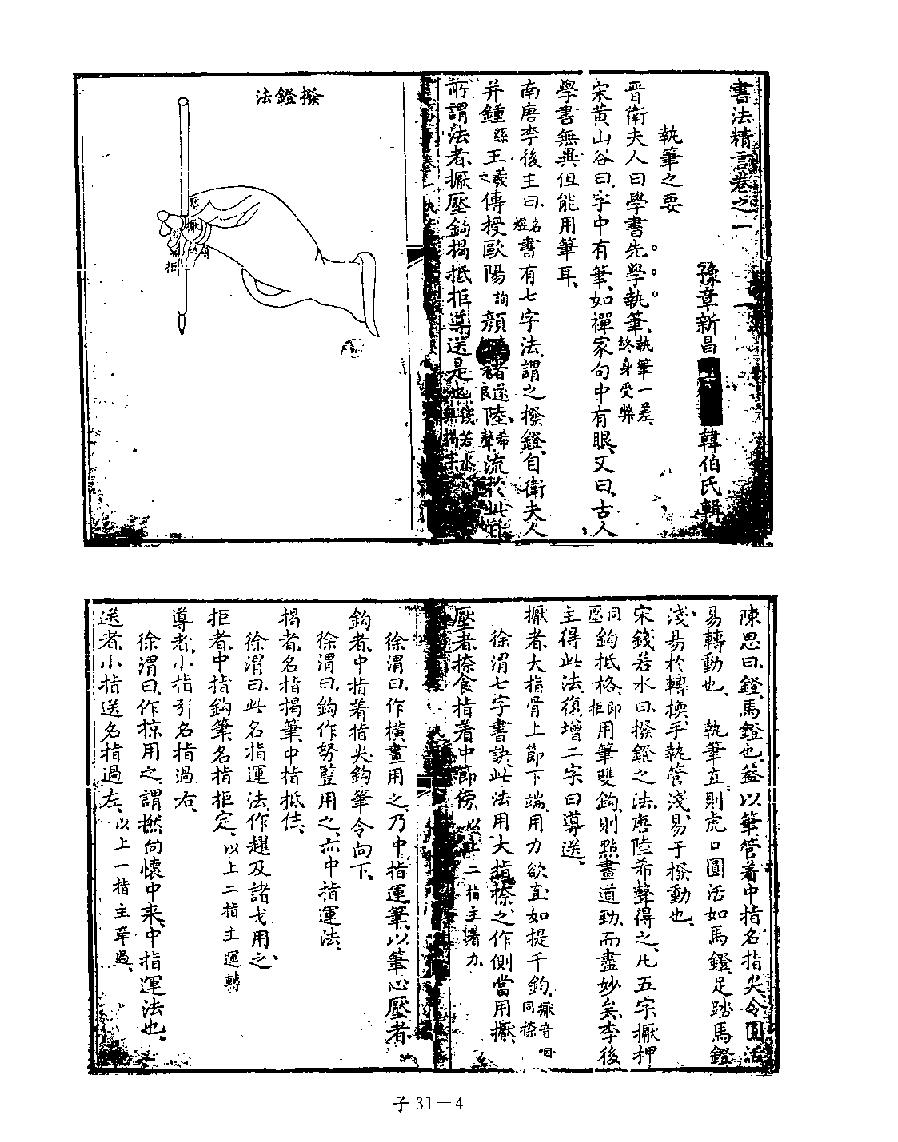 書法精言卷之一
豫章新昌 韓伯氏輯
執筆之要
晉衛夫人曰學書先學執筆執筆一差終身受弊
宋黃山谷曰字中有筆如禪家句中有眼又曰古人
學書無異但能用筆耳
南唐李後主曰名煜書有七字法謂之撥鐙自衛夫人
并鍾繇王羲之傳授歐陽詢顏 褚遂良陸希聲流於此
所謂法者擫壓鈎揭抵拒導送是也
撥鐙法
拒
陳思曰鐙馬鐙也蓋以筆管着中指名指尖令圓活
易轉動也 執筆直則虎口圓活如馬鐙足踏馬鐙
淺易於轉換手執管淺易于撥動也
宋錢若水曰撥鐙之法唐陸希聲得之凡五字擫押
鈎抵格即同拒用筆雙鈎則點畫遒勁而盡妙矣李後
主得此法復增二字曰導送
擫者大指骨上節下端用力欲直如提千鈞
徐渭七字書訣此法用大指捺之作側當用擫
壓者捺食指着中節傍以上二指主着力
徐渭曰作橫畫用之乃中指運筆以筆心壓者
鈎者中指着指尖鈎筆令向下
徐渭曰鈎作努豎用之亦中指運法
揭者名指揭筆中指抵住
徐渭曰此名指運法作趯及諸戈用之
拒者中指鈎筆名指拒定以上二指主運轉
導者小指引名指過右
徐渭曰作掠用之謂撚向懷中来中指運法也
送者小指送名指過左以上一指主牽過
子31－4